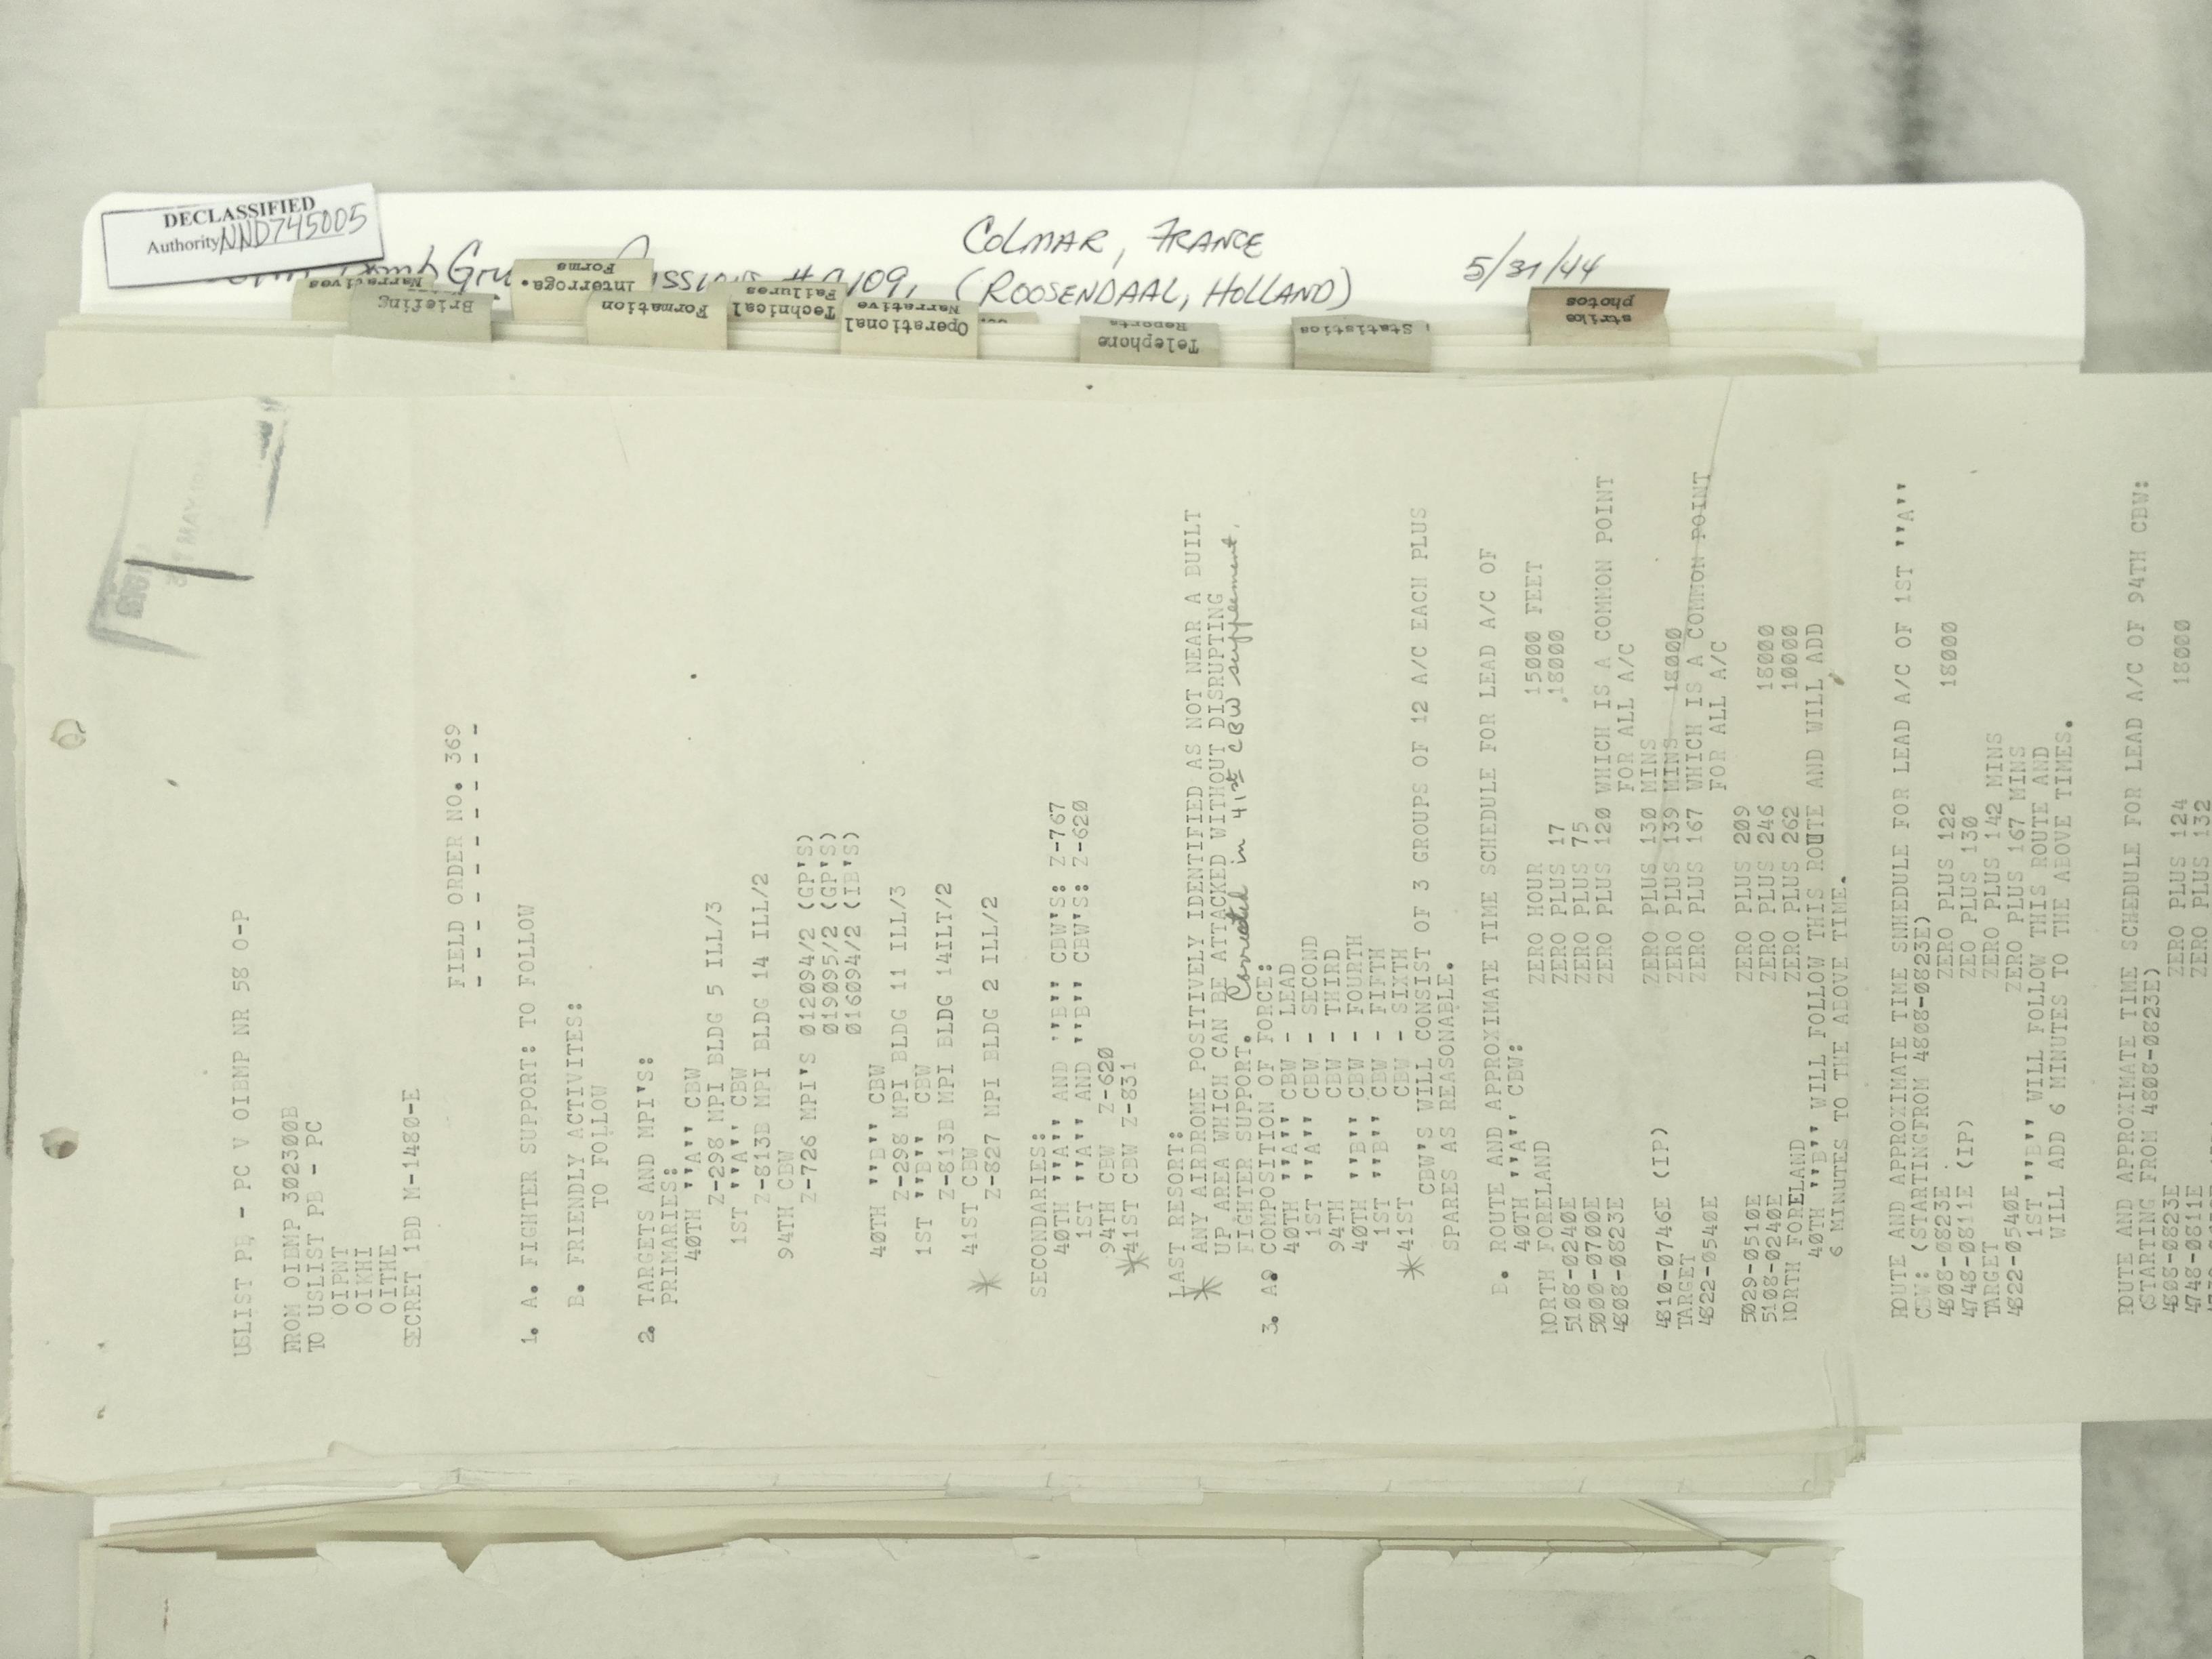 DECLASSIFIED
Authority NND745005
COLMAR, FRANCE
(ROOSENDAAL, HOLLAND)
5/31/44
Narratives
Briefing
Interroga.
Forms
Formation
Technical
Failures
Operational
Narrative
Telephone
Reports
Statistics
strike
photos
USLIST PB - PC V OIBMP NR 58 O-P
FROM OIBMP 302300B
TO USLIST PB - PC
OIPNT
OIKHI
OITHE
SECRET 1BD M-1480-E
FIELD ORDER NO. 369
- - - - - - - - - - -
1. A. FIGHTER SUPPORT: TO FOLLOW
B. FRIENDLY ACTIVITES:
TO FOLLOW
2. TARGETS AND MPI'S:
PRIMARIES:
40TH ''A'' CBW
Z-298 MPI BLDG 5 ILL/3
1ST ''A'' CBW
Z-813B MPI BLDG 14 ILL/2
94TH CBW
Z-726 MPI'S 012094/2 (GP'S)
019095/2 (GP'S)
016094/2 (IB'S)
40TH ''B'' CBW
Z-298 MPI BLDG 11 ILL/3
1ST ''B'' CBW
Z-813B MPI BLDG 14ILT/2
41ST CBW
* Z-827 MPI BLDG 2 ILL/2
SECONDARIES:
40TH ''A'' AND ''B'' CBW'S: Z-767
1ST ''A'' AND ''B'' CBW'S: Z-620
94TH CBW Z-620
* 41ST CBW Z-831
LAST RESORT:
* ANY AIRDROME POSITIVELY IDENTIFIED AS NOT NEAR A BUILT
UP AREA WHICH CAN BE ATTACKED WITHOUT DISRUPTING
FIGHTER SUPPORT. Corrected in 41st CBW supplement.
3. A. COMPOSITION OF FORCE:
40TH ''A'' CBW - LEAD
1ST ''A'' CBW - SECOND
94TH CBW - THIRD
40TH ''B'' CBW - FOURTH
1ST ''B'' CBW - FIFTH
* 41ST CBW - SIXTH
CBW'S WILL CONSIST OF 3 GROUPS OF 12 A/C EACH PLUS
SPARES AS REASONABLE.
B. ROUTE AND APPROXIMATE TIME SCHEDULE FOR LEAD A/C OF
40TH ''A'' CBW:
NORTH FORELAND ZERO HOUR 15000 FEET
5108-0240E ZERO PLUS 17 18000
5000-0700E ZERO PLUS 75
4808-0823E ZERO PLUS 120 WHICH IS A COMMON POINT
FOR ALL A/C
4810-0746E (IP) ZERO PLUS 130 MINS
TARGET ZERO PLUS 139 MINS 18000
4822-0540E ZERO PLUS 167 WHICH IS A COMMON POINT
FOR ALL A/C
5029-0510E ZERO PLUS 209
5108-0240E ZERO PLUS 246 18000
NORTH FORELAND ZERO PLUS 262 10000
40TH ''B'' WILL FOLLOW THIS ROUTE AND WILL ADD
6 MINUTES TO THE ABOVE TIME.
ROUTE AND APPROXIMATE TIME SNHEDULE FOR LEAD A/C OF 1ST ''A''
CBW: (STARTINGFROM 4808-0823E)
4808-0823E ZERO PLUS 122 18000
4748-0811E (IP) ZEO PLUS 130
TARGET ZERO PLUS 142 MINS
4822-0540E ZERO PLUS 167 MINS
1ST ''B'' WILL FOLLOW THIS ROUTE AND
WILL ADD 6 MINUTES TO THE ABOVE TIMES.
ROUTE AND APPROXIMATE TIME SCHEDULE FOR LEAD A/C OF 94TH CBW:
(STARTING FROM 4808-0823E)
4808-0823E ZERO PLUS 124 18000
4748-0811E ZERO PLUS 132